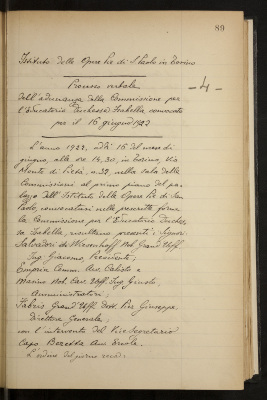 89
Istituto delle Opere Pie di S. Paolo in Torino
Processo verbale
- 4 -
dell'adunanza della Commissione per
l'Educatorio Duchessa Isabella convocata
per il 16 giugno 1922
L'anno 1922, addì 16 del mese di
giugno, alle ore 14,30, in Torino, Via
Monte di Pietà, n. 32, nella sala delle
Commissioni al primo piano del pa-
lazzo dell'Istituto delle Opere Pie di San
Paolo, convocatasi nelle prescritte forme
la Commissione per l'Educatorio Duches-
sa Isabella, risultano presenti i Signori:
Salvadori di Wiesenhoff Nob. Grand'Uff.
Ing. Giacomo, Presidente;
Emprin Comm. Avv. Calisto e
Marino Nob. Cav. Uff. Ing.
Amministratori;
Fabris Grand'Uff. Dott. Pier Giuseppe
Direttore Generale,
con l'intervento del Vice Segretario
Capo Beretta Avv. Ercole.
L'ordine del giorno reca: